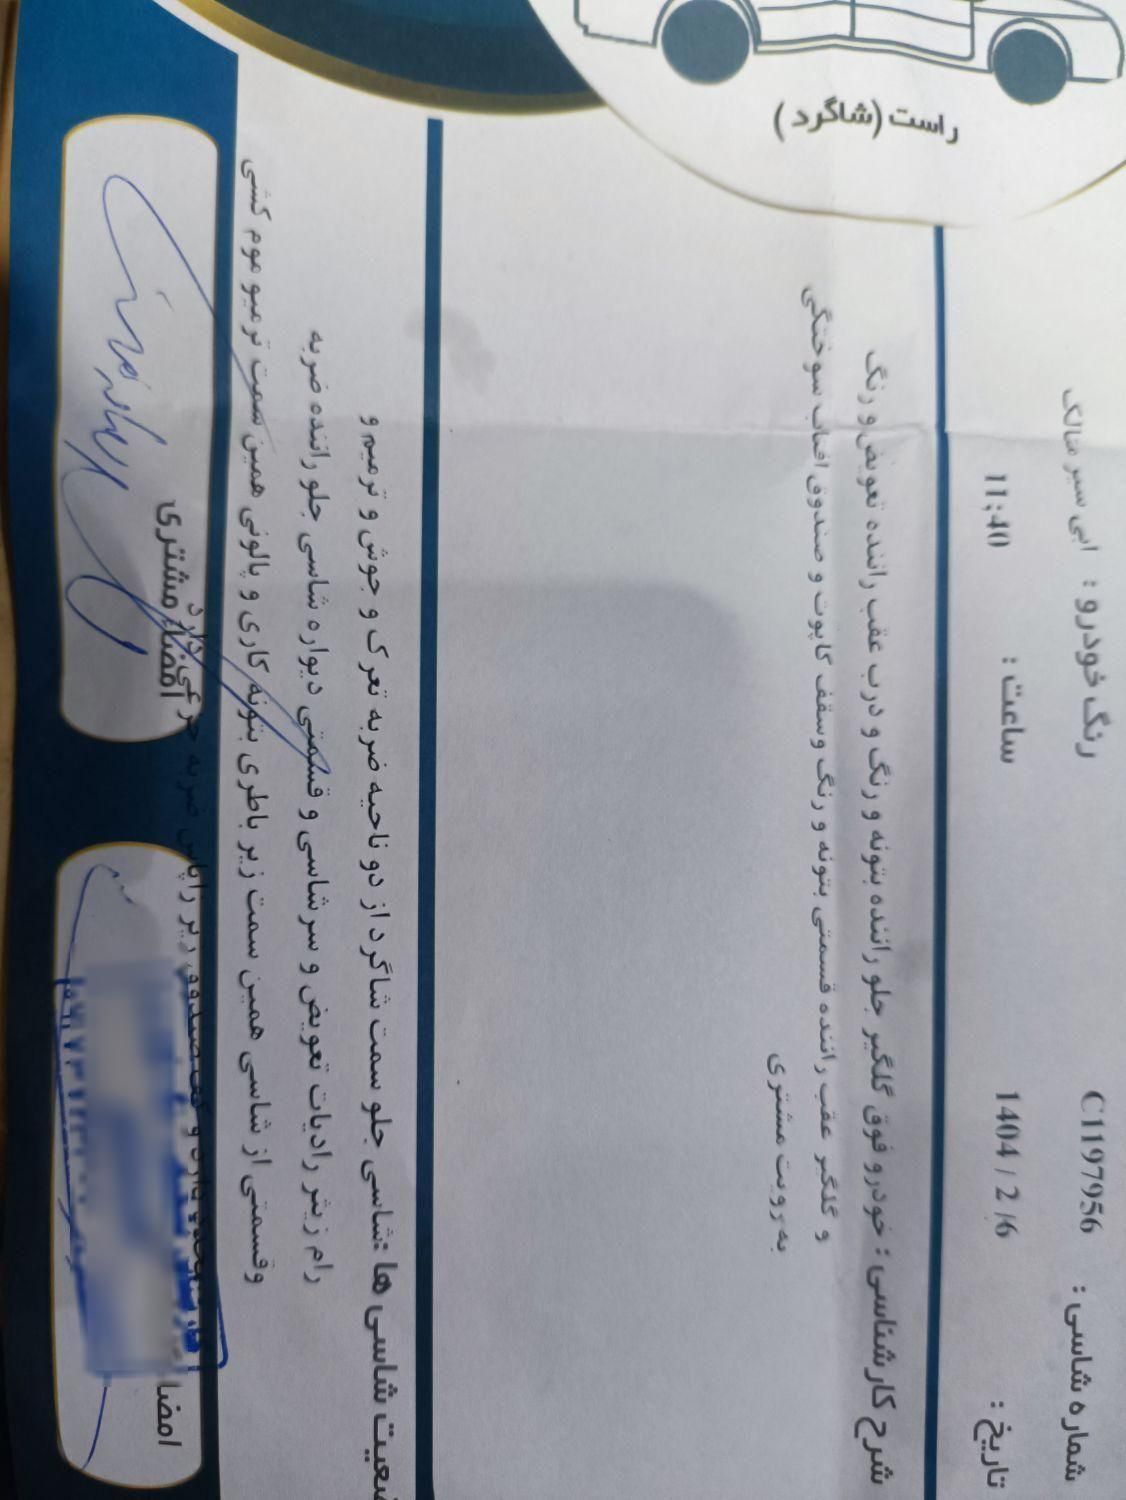 راست (شاگرد)
شماره شاسی : C1197956 رنگ خودرو : ابی سیر متالک
تاریخ : 1404 / 2 /6 ساعت : 11:40
شرح کارشناسی : خودرو فوق گلگیر جلو راننده بتونه و رنگ و درب عقب راننده تعویض و رنگ
و گلگیر عقب راننده قسمتی بتونه و رنگ وسقف کاپوت و صندوق افتاب سوختگی
به رویت مشتری
ضعیت شاسی ها :شاسی جلو سمت شاگرد از دو ناحیه ضربه ترک و جوش و ترمیم و
رام زیثر رادیات تعویض و سرشاسی و قسمتی دیواره شاسی جلو راننده ضربه
وقسمتی از شاسی همین سمت زیر باطری بتونه کاری و پالونی همین سمت ترمیو موم کشی
دارد و کف صندوق زیر زاپاس ضربه جزعی دارد
امضا
امضاء مشتری